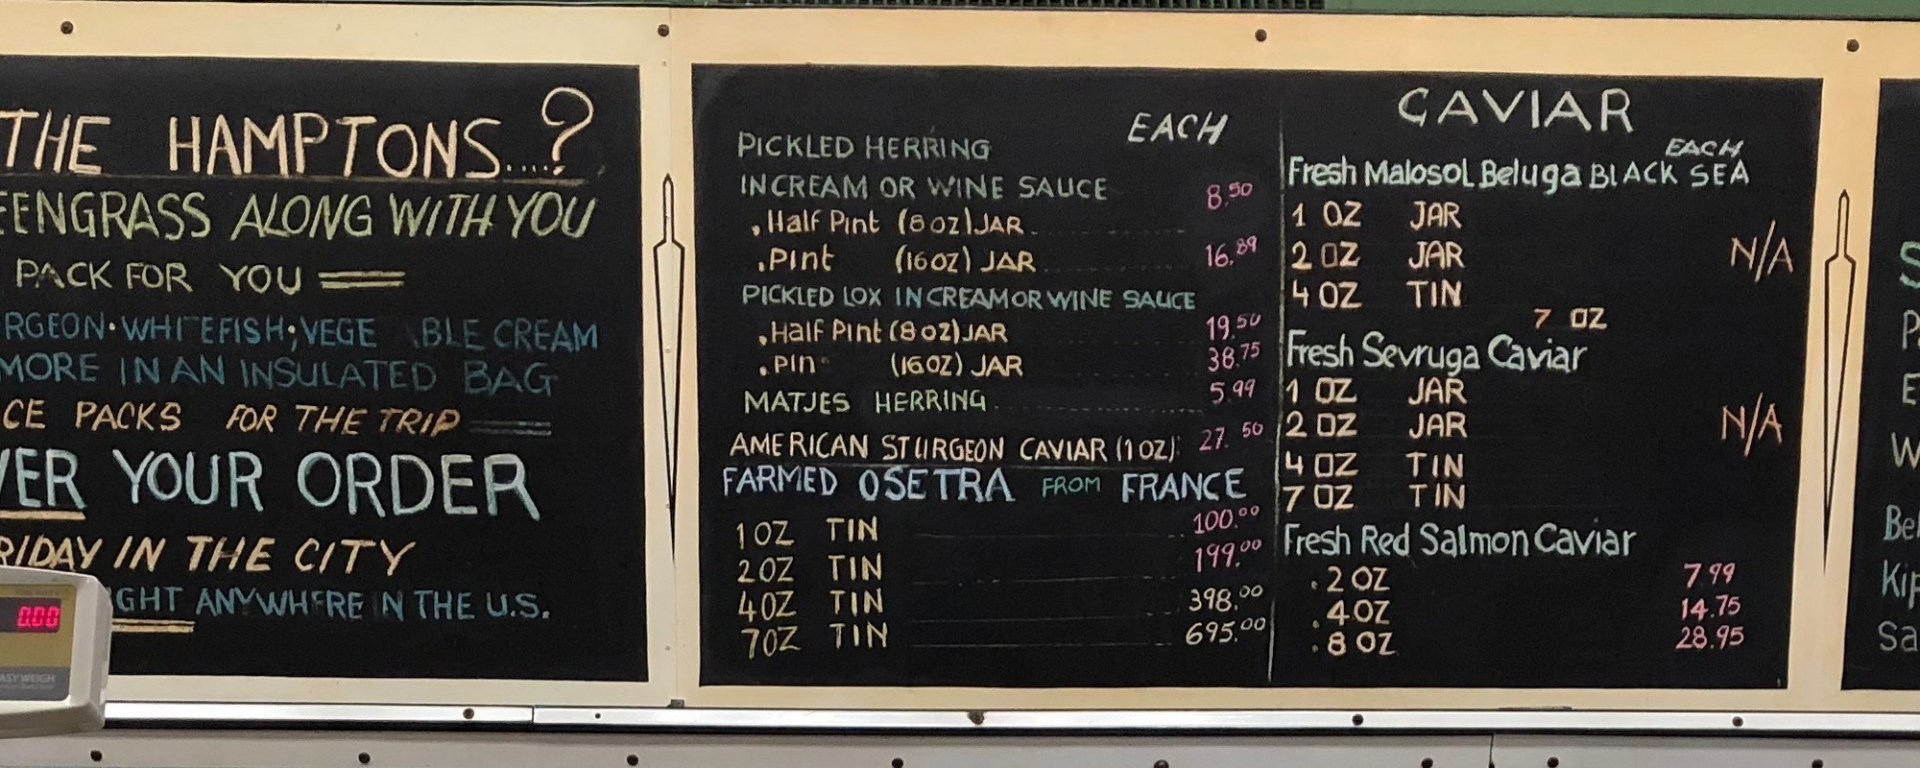 THE HAMPTONS....?
EENGRASS ALONG WITH YOU
PACK FOR YOU
RGEON•WHITEFISH;VEGE ABLE CREAM
MORE IN AN INSULATED BAG
CE PACKS FOR THE TRIP
VER YOUR ORDER
RIDAY IN THE CITY
GHT ANYWHERE IN THE U.S.
0.00
ASY WEIGH
EACH
PICKLED HERRING
IN CREAM OR WINE SAUCE
. Half Pint (8 OZ) JAR 8.50
. Pint (16 OZ) JAR 16.89
PICKLED LOX IN CREAM OR WINE SAUCE
. Half Pint (8 OZ) JAR 19.50
. Pin (16 OZ) JAR 38.75
MATJES HERRING 5.99
AMERICAN STURGEON CAVIAR (1 OZ) 27.50
FARMED OSETRA FROM FRANCE
1 OZ TIN 100.00
2 OZ TIN 199.00
4 OZ TIN 398.00
7 OZ TIN 695.00
CAVIAR
EACH
Fresh Malosol Beluga BLACK SEA
1 OZ JAR
2 OZ JAR N/A
4 OZ TIN
7 OZ
Fresh Sevruga Caviar
1 OZ JAR
2 OZ JAR N/A
4 OZ TIN
7 OZ TIN
Fresh Red Salmon Caviar
. 2 OZ 7.99
. 4 OZ 14.75
. 8 OZ 28.95
S
P
E
W
Bel
Kip
Sa